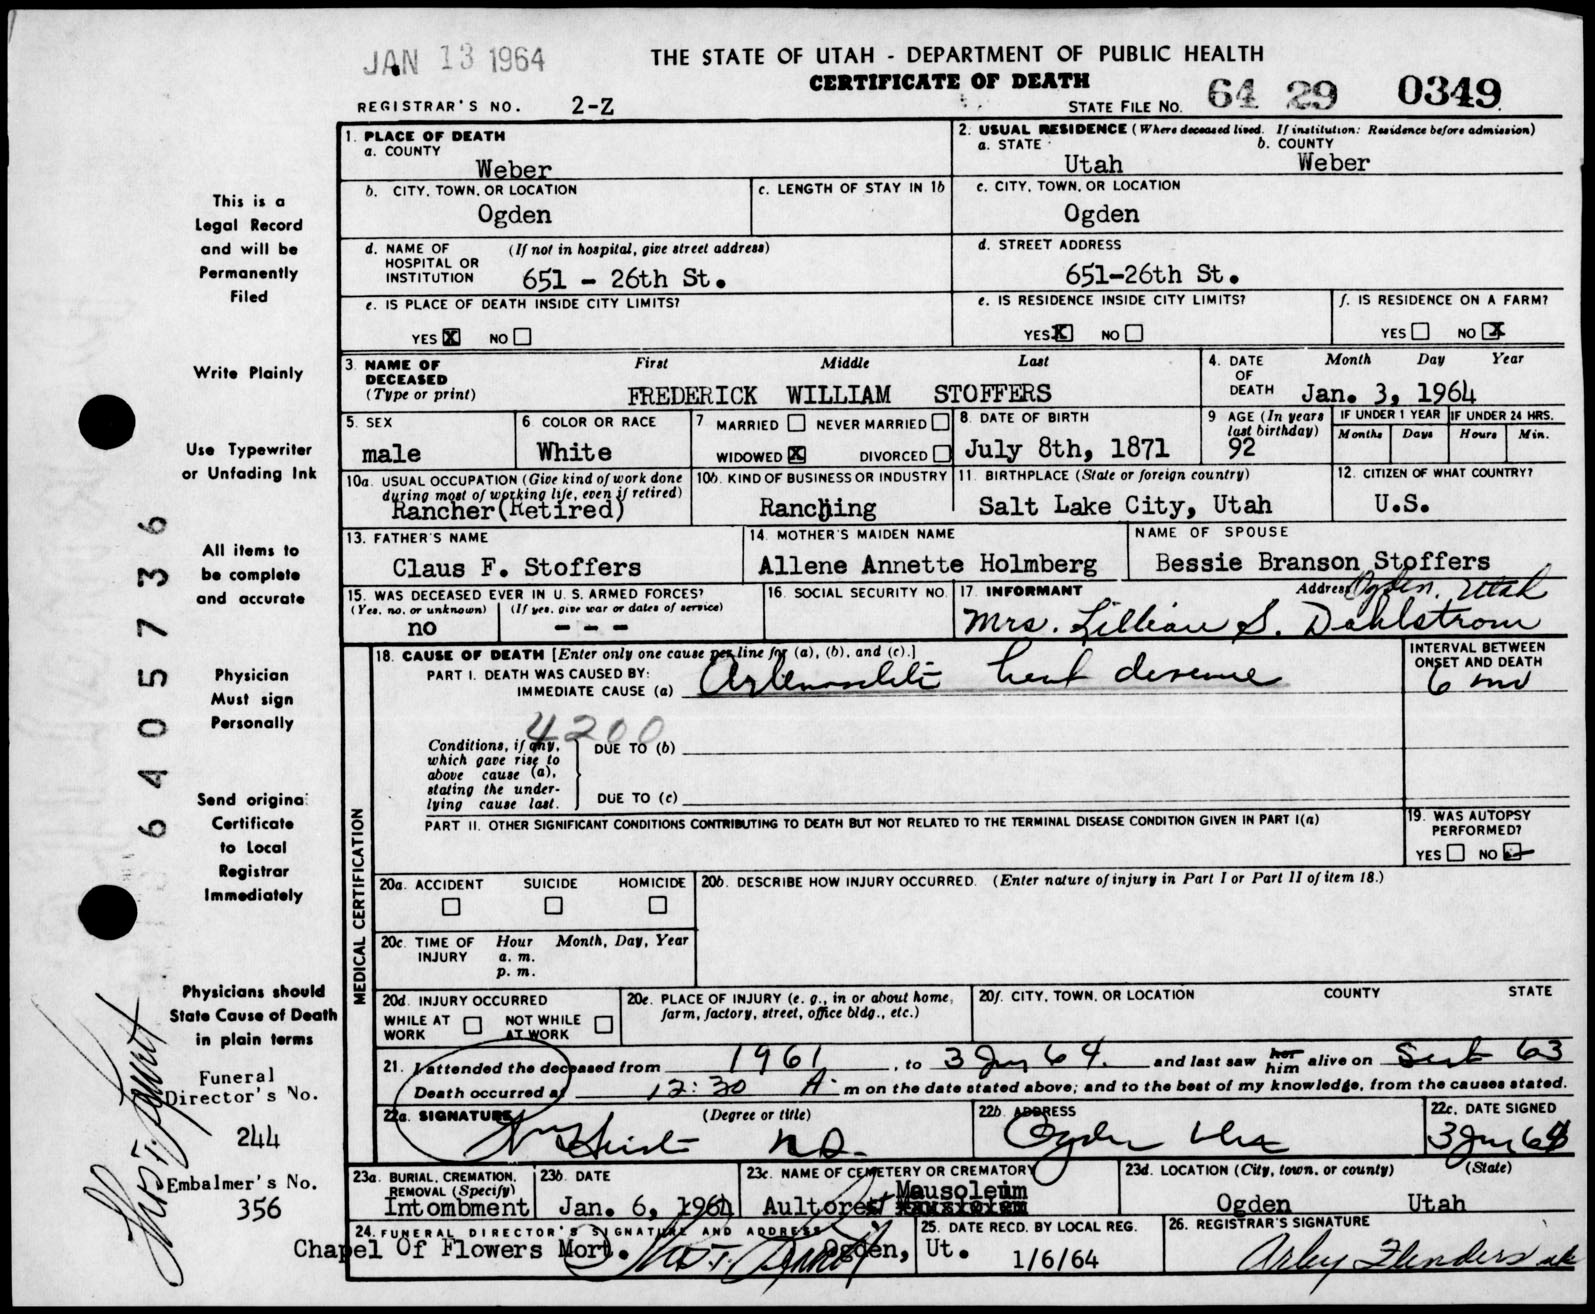 JAN 13 1964
THE STATE OF UTAH - DEPARTMENT OF PUBLIC HEALTH
CERTIFICATE OF DEATH
REGISTRAR'S NO. 2-Z
STATE FILE NO. 64 29 0349
This is a
Legal Record
and will be
Permanently
Filed
Write Plainly
Use Typewriter
or Unfading Ink
All items to
be complete
and accurate
Physician
Must sign
Personally
Send original
Certificate
to Local
Registrar
Immediately
Physicians should
State Cause of Death
in plain terms
Funeral
Director's No.
244
Embalmer's No.
356
6405736
1. PLACE OF DEATH
a. COUNTY
Weber
2. USUAL RESIDENCE (Where deceased lived. If institution: Residence before admission)
a. STATE b. COUNTY
Utah Weber
b. CITY, TOWN, OR LOCATION
Ogden
c. LENGTH OF STAY IN 1b
c. CITY, TOWN, OR LOCATION
Ogden
d. NAME OF HOSPITAL OR INSTITUTION (If not in hospital, give street address)
651 - 26th St.
d. STREET ADDRESS
651-26th St.
e. IS PLACE OF DEATH INSIDE CITY LIMITS?
YES X NO
e. IS RESIDENCE INSIDE CITY LIMITS?
YES X NO
f. IS RESIDENCE ON A FARM?
YES NO X
3. NAME OF DECEASED (Type or print)
First Middle Last
FREDERICK WILLIAM STOFFERS
4. DATE OF DEATH
Month Day Year
Jan. 3, 1964
5. SEX
male
6. COLOR OR RACE
White
7 MARRIED NEVER MARRIED
WIDOWED X DIVORCED
8. DATE OF BIRTH
July 8th, 1871
9 AGE (In years last birthday)
92
IF UNDER 1 YEAR IF UNDER 24 HRS.
Months Days Hours Min.
10a. USUAL OCCUPATION (Give kind of work done during most of working life, even if retired)
Rancher(Retired)
10b. KIND OF BUSINESS OR INDUSTRY
Ranching
11. BIRTHPLACE (State or foreign country)
Salt Lake City, Utah
12. CITIZEN OF WHAT COUNTRY?
U.S.
13. FATHER'S NAME
Claus F. Stoffers
14. MOTHER'S MAIDEN NAME
Allene Annette Holmberg
NAME OF SPOUSE
Bessie Branson Stoffers
15. WAS DECEASED EVER IN U. S. ARMED FORCES?
(Yes, no, or unknown) (If yes, give war or dates of service)
no - - -
16. SOCIAL SECURITY NO.
17. INFORMANT Address Ogden, Utah
Mrs. Lillian S. Dahlstrom
MEDICAL CERTIFICATION
18. CAUSE OF DEATH [Enter only one cause per line for (a), (b), and (c).]
PART I. DEATH WAS CAUSED BY:
IMMEDIATE CAUSE (a) heart disease
INTERVAL BETWEEN ONSET AND DEATH
6 mo
4200
Conditions, if any, which gave rise to above cause (a), stating the underlying cause last.
DUE TO (b)
DUE TO (c)
PART II. OTHER SIGNIFICANT CONDITIONS CONTRIBUTING TO DEATH BUT NOT RELATED TO THE TERMINAL DISEASE CONDITION GIVEN IN PART I(a)
19. WAS AUTOPSY PERFORMED?
YES NO
20a. ACCIDENT SUICIDE HOMICIDE
20b. DESCRIBE HOW INJURY OCCURRED. (Enter nature of injury in Part I or Part II of item 18.)
20c. TIME OF INJURY Hour Month, Day, Year
a. m.
p. m.
20d. INJURY OCCURRED
WHILE AT WORK NOT WHILE AT WORK
20e. PLACE OF INJURY (e. g., in or about home, farm, factory, street, office bldg., etc.)
20f. CITY, TOWN, OR LOCATION COUNTY STATE
21. I attended the deceased from 1961, to 3 Jan 64. and last saw her him alive on Sept 63
Death occurred at 12:30 A m on the date stated above; and to the best of my knowledge, from the causes stated.
22a. SIGNATURE (Degree or title)
M.D.
22b. ADDRESS
Ogden Utah
22c. DATE SIGNED
3 Jan 64
23a. BURIAL, CREMATION, REMOVAL (Specify)
Intombment
23b. DATE
Jan. 6, 1964
23c. NAME OF CEMETERY OR CREMATORY
Aultorest Mausoleum
23d. LOCATION (City, town, or county) (State)
Ogden Utah
24. FUNERAL DIRECTOR'S SIGNATURE AND ADDRESS
Chapel Of Flowers Mort. Ogden, Ut.
25. DATE RECD. BY LOCAL REG.
1/6/64
26. REGISTRAR'S SIGNATURE
Arley Flinders